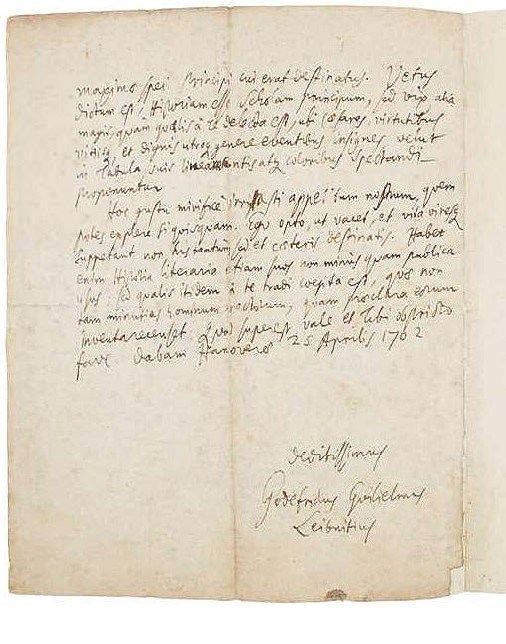 maximae spei Principi cui erat destinatus. Vetus
dictum est, Historiam esse Scholam principum, sed vix alia
magis, quam qualis à te delecta est, ubi Caesares, virtutibus
vitiisq, et dignis utroq genere eventibus insignes velut
in tabula suis lineamentis atq coloribus spectandi
proponuntur
Hoc gustu mirifice irritasti appetitum nostrum, quem
potes explere si quisquam. Ego opto, ut vacet, et vita viresq
suppetant non his tantum sed et caeteris destinatis. Habet
enim Historia literaria etiam suos non minus quam publica
usus sed qualis itidem à te tradi coepta est, quae non
tam minutias hominum doctorum, quam praeclara eorum
inventa recenset. Quod superest vale et tibi obstricto
fave. Dabam Hanoverae 25 Aprilis 1702
deditissimus
Godefridus Guilielmus
Leibnitius